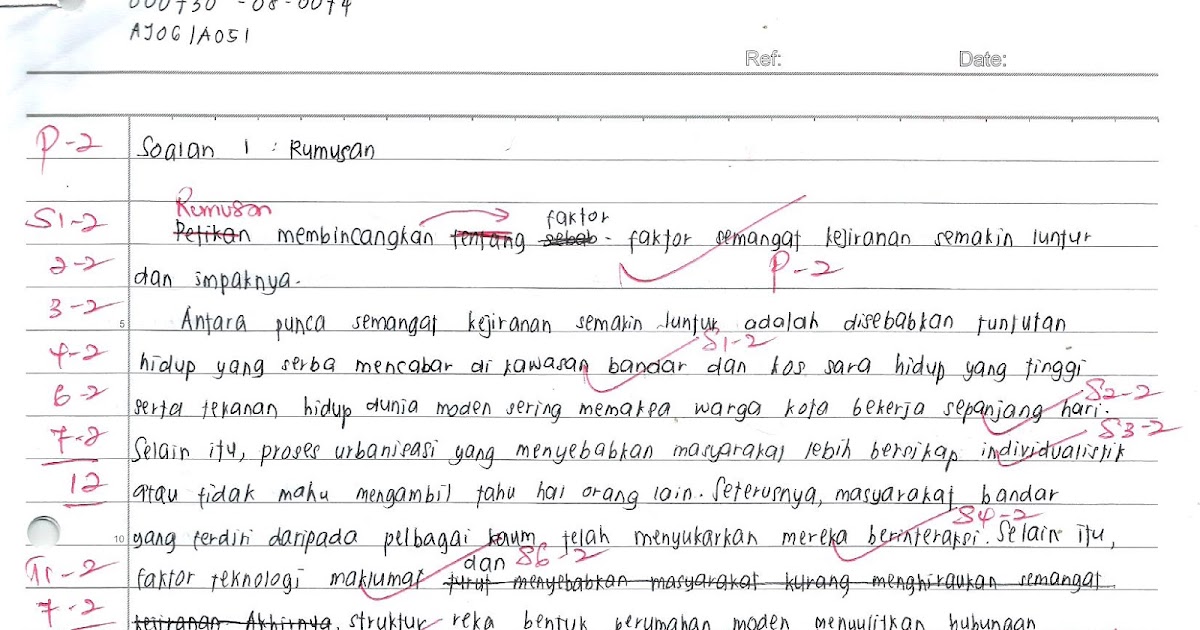 000730-08-0074
AJ06/A051
Ref: Date:
P-2 Soalan 1 : Rumusan
Rumusan faktor
S1-2 Petikan membincangkan tentang sebab - faktor semangat kejiranan semakin luntur
P-2
2-2 dan impaknya.
3-2 5 Antara punca semangat kejiranan semakin luntur adalah disebabkan tuntutan
S1-2
4-2 hidup yang serba mencabar di kawasan bandar dan kos sara hidup yang tinggi
S2-2
6-2 serta tekanan hidup dunia moden sering memaksa warga kota bekerja sepanjang hari.
S3-2
7-2 Selain itu, proses urbanisasi yang menyebabkan masyarakat lebih bersikap individualistik
12 atau tidak mahu mengambil tahu hal orang lain. Seterusnya, masyarakat bandar
S4-2
10 yang terdiri daripada pelbagai kaum telah menyukarkan mereka berinteraksi. Selain itu,
dan S6-2
-2 faktor teknologi maklumat turut menyebabkan masyarakat kurang menghiraukan semangat
7-2 kejiranan. Akhirnya, struktur reka bentuk perumahan moden menyulitkan hubungan